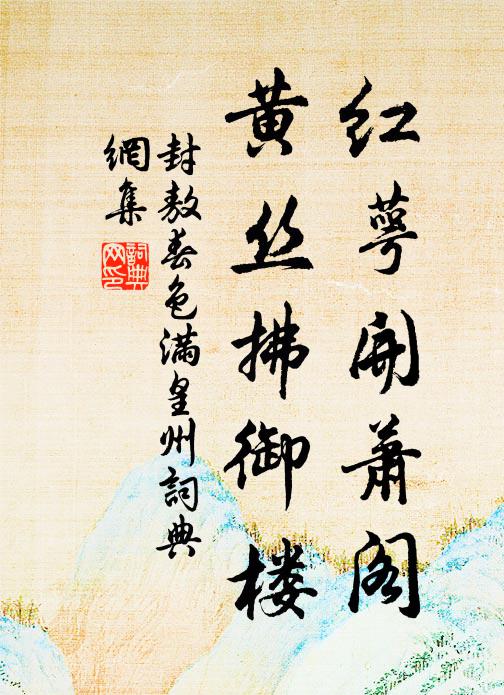 红萼开萧阁
黄丝拂御楼
封敖春色满皇州词典
网集
词典
网印